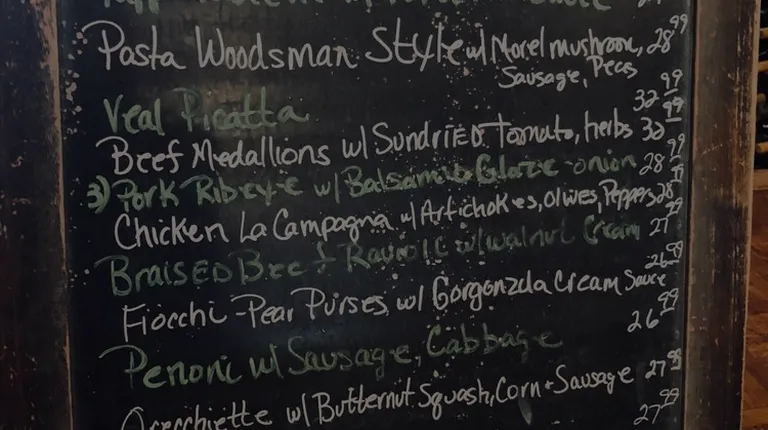 Pasta Woodsman Style w/ Morel mushroom, 28 99
Sausage, Peas
Veal Picatta 32 99
Beef Medallions w/ Sundried Tomato, herbs 32 99
3) Pork Ribeye w/ Balsamic Glaze-onion 28 99
Chicken La Campagna w/ Artichokes, Olives, Peppers 28 99
Braised Beef Ravioli w/ walnut Cream 27 99
Fiocchi-Pear Purses w/ Gorgonzola Cream Sauce 26 99
26 99
Penoni w/ Sausage, Cabbage
Orecchiette w/ Butternut Squash, Corn + Sausage 27 99
27 99